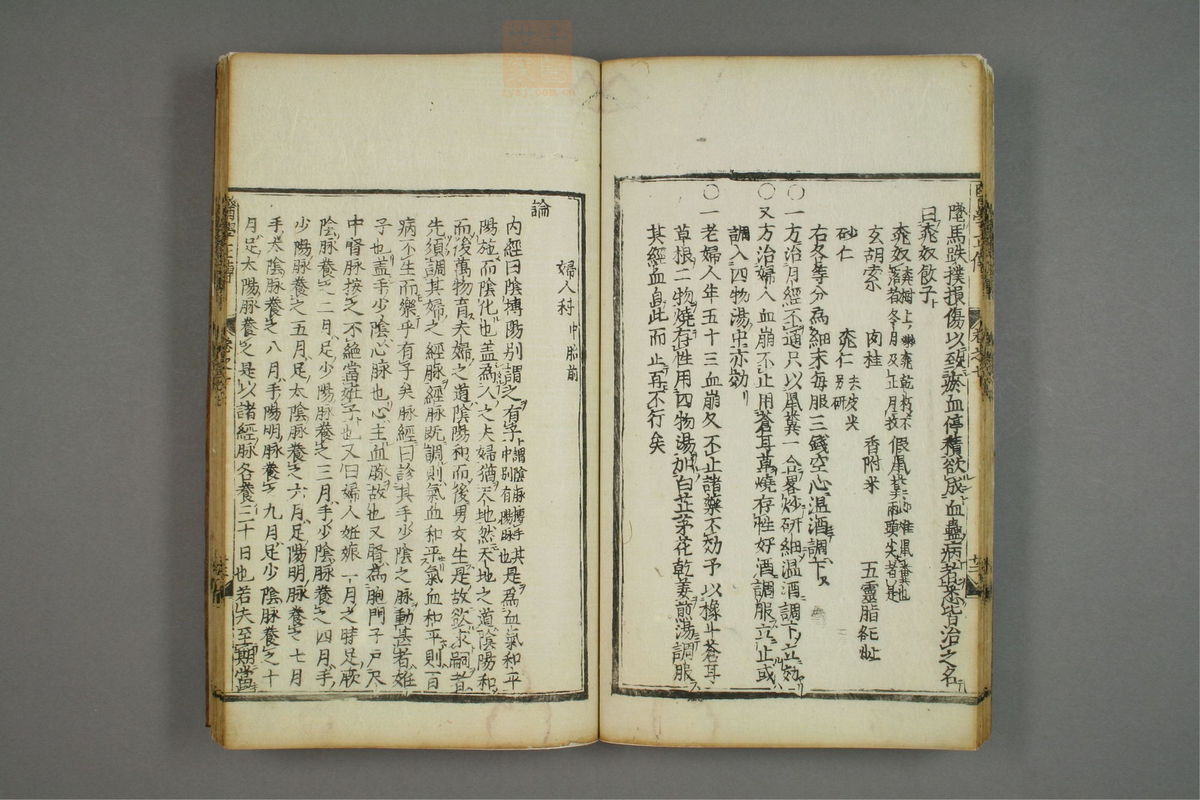 墜馬跌撲損傷以致瘀血停積欲成血蠱病者悉皆治之名
曰桃奴飲子
桃奴 
玄胡索 肉桂 香附米 五靈脂
砂仁 桃仁 去皮尖另研
右各等分為細末每服三錢空心温酒調下
〇一方治月經不通只以鼠糞一合畧炒研細温酒調下立効
〇又方治婦人血崩不止用蒼耳草燒存性好酒調服立止或
調入四物湯中亦効
〇一老婦人年五十三血崩久不止諸藥不効予以橡斗蒼耳
草根二物燒存性用四物湯加白芷茅花乾姜煎湯調服
其經血自此而止再不行矣
婦人科中 胎前
論
内經曰陰搏陽別謂之有子 是為血氣和平
陽施而陰化也盖為人之夫婦猶天地然天地之道陰陽和
而後萬物育夫婦之道陰陽和而後男女生是故欲求嗣者
先須調其婦之經脉經脉既調則氣血和平氣血和平則百
病不生而樂乎有子矣脉經曰診其手少陰之脉動甚者姙
子也盖手少陰心脉也心主血脉故也又腎為胞門子戸尺
中腎脉按之不絶當姙子也又曰婦人姙娠一月之時足厥
陰脉養之二月足少陽脉養之三月手少陰脉養之四月手
少陽脉養之五月足太陰脉養之六月足陽明脉養之七月
手太陰脉養之八月手陽明脉養之九月足少陰脉養之十
月足太陽脉養之是以諸經脉各養三十日也若夫至期當